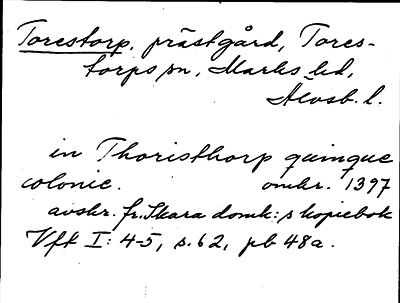 Torestorp, prästgård, Tores-
torps sn, Marks hd,
Älvsb. l.
in Thoristhorp quinque
colonie. omkr. 1397
avskr. fr. Skara domk:s kopiebok
Vfk I: 4-5, s. 62, pb 48a.